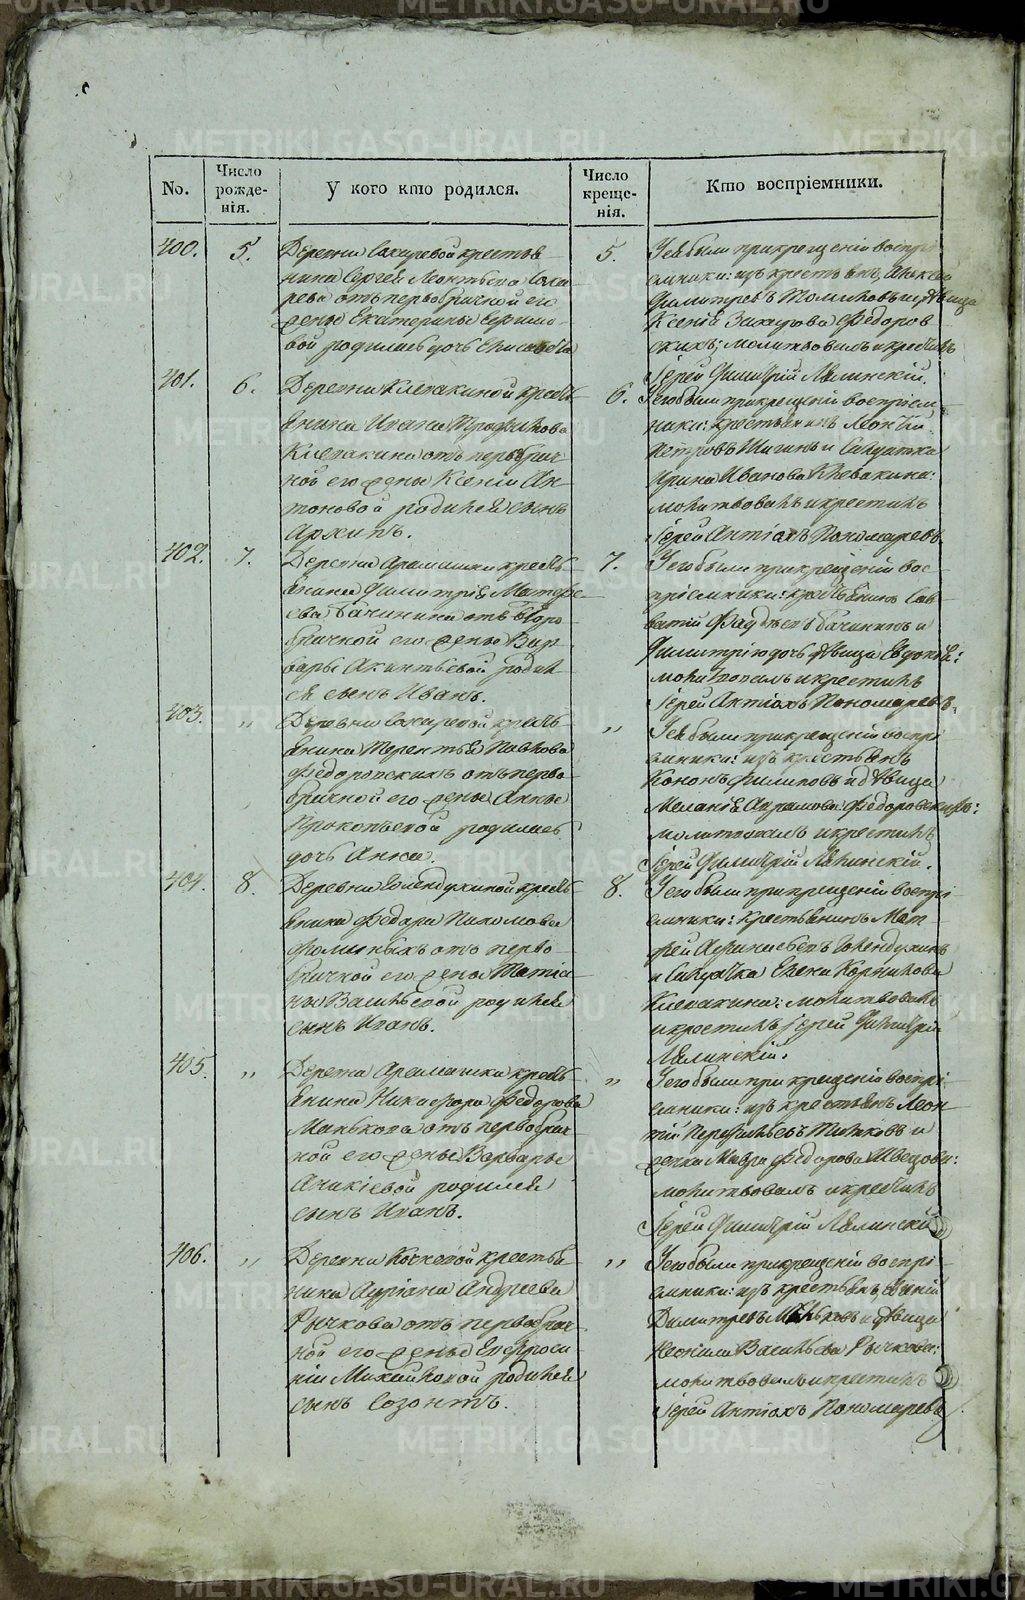 METRIKI.GASO-URAL.RU
No.
Число рожденія.
У кого кто родился.
Число крещенія.
Кто воспріемники.
400.
5.
Деревни Сохаревой крестья-
нина Сергея Леонтьева Соха-
рева отъ первобрачной его
жены Екатерины
вой родилась дочь Елисавета
5.
У ея были при крещеніи воспрі-
емники: изъ крестьянъ Алексей
Димитревъ и девица
Ксенія Захарова Федоров-
скихъ; молитвовалъ и крестилъ
Іерей Димитрій Лялинскій.
401.
6.
Деревни Клевакиной кресть-
янина Ивана Трофимова
Клевакина отъ первобрач-
ной его жены Ксеніи Ан-
тоновой родился сынъ
Архипъ.
6.
У его были при крещеніи воспріем-
ники: крестьянинъ Леонтій
Петровъ Шигинъ и Салдатка
Ирина Иванова Клевакина:
молитвовалъ и крестилъ
Іерей Антіохъ Пономаревъ
402.
7.
Деревни Арамашки кресть-
янина Димитрія Матфе-
ева Бачинина отъ второ-
брачной его жены Вар-
вары Акинтьевой родил-
ся сынъ Иванъ.
7.
У его были при крещеніи вос-
пріемники: крестьянинъ Сав-
ватій Фадѣевъ Бачининъ и
Димитрію дочь девица Евдокія:
молитвовалъ и крестилъ
Іерей Антіохъ Пономаревъ.
403.
"
Деревни Сохаревой кресть-
янина Терентья Павлова
Федоровскихъ отъ перво-
брачной его жены Анны
Прокопьевой родилась
дочь Анна.
"
У ея были при крещеніи воспрі-
емники: изъ крестьянъ
Кононъ Филиповъ и девица
Меланія Абрамова Федоровскихъ:
молитвовалъ и крестилъ
Іерей Димитрій Лялинскій.
404.
8.
Деревни Голендухиной кресть-
янина Федора Пахомова
Фоминыхъ отъ перво-
брачной его жены Татіа-
ны Васильевой родился
сынъ Иванъ.
8.
У его были при крещеніи воспрі-
емники: крестьянинъ Мат-
фей Афанасьевъ Голендухинъ
и Салдатка Елена Корнилова
Клевакина: молитвовалъ
и крестилъ Іерей Димитрій
Лялинскій.
405.
"
Деревни Арамашки кресть-
янина Никифора Федорова
Манькова отъ первобрач-
ной его жены Варвары
Аникіевой родился
сынъ Иванъ.
"
У его были при крещеніи воспрі-
емники: изъ крестьянъ Леон-
тій Перфильевъ и
женка Мавра Федорова Швецова:
молитвовалъ и крестилъ
Іерей Димитрій Лялинскій
406.
"
Деревни Кочневой крестья-
нина Адріана Андреева
Рычкова отъ первобрач-
ной его жены Евфроси-
ніи Михайловой родился
сынъ Созонтъ.
"
У его были при крещеніи воспрі-
емники: изъ крестьянъ
Димитревъ и девица
Неонила Васильева Рычкова:
молитвовалъ и крестилъ
Іерей Антіохъ Пономаревъ